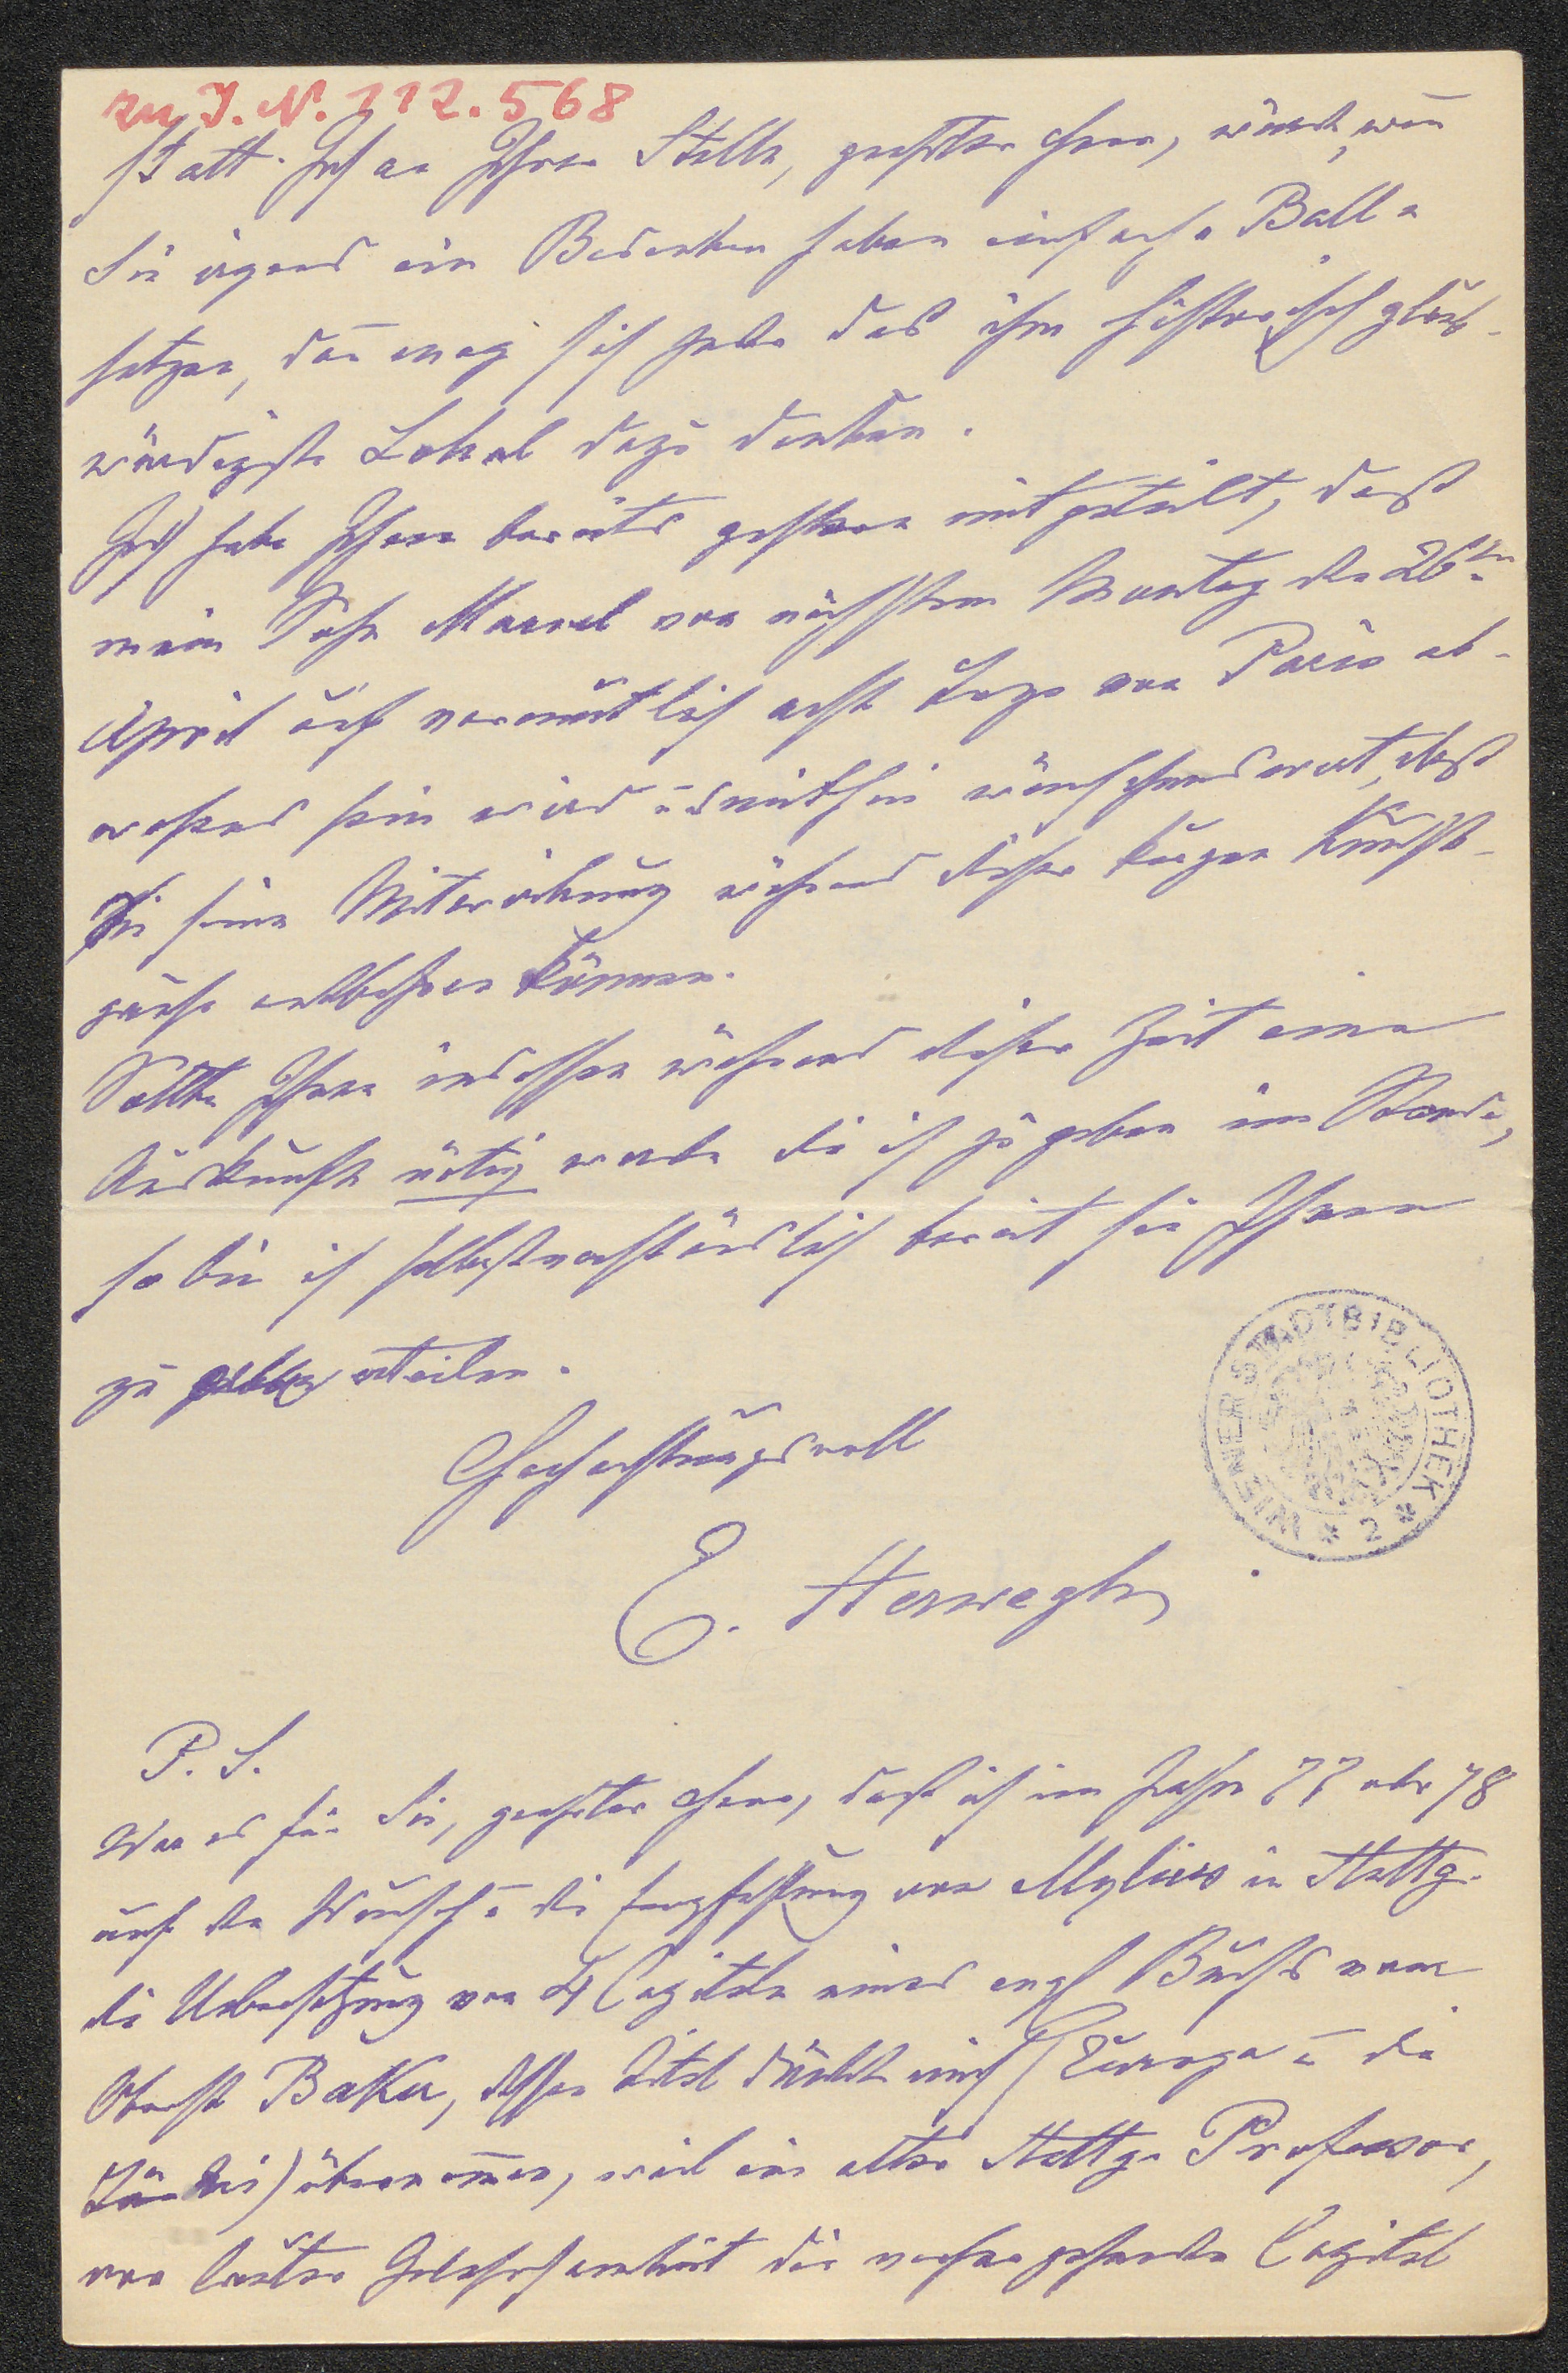 zu J. N. 112.568
statt. Ich an Ihrer Stelle, geehrter Herr, würde, weñ
Sie irgend ein Bedenken haben einfach a Ball a
setzen, dañ mag sich jeder das ihm historisch glaub-
würdigste Lokal dazu denken.
Ich habe Ihnen bereits gestern mitgeteilt, daß
mein Sohn Marcel von nächstem Montag den 26ten
April auf vermutlich acht Tage von Paris ab-
wesend sein wird u. mithin wünschenswert, daß
Sie seine Mitwirkung während dieser kurzen Kunst-
pause entbehren können.
Sollte Ihnen indessen während dieser Zeit eine
Auskunft nötig werden die ich zu geben im Stande,
so bin ich selbstverständlich bereit sie Ihnen
zu erteilen.
Hochachtungsvoll
E. Herwegh
P. S.
War es für Sie, geehrter Herr, daß ich im Jahre 77 oder 78
auf den Wunsch u. die Empfehlung von Mylius in Stuttg.
die Uebersetzung von 4 Capiteln eines engl Buchs vom
Oberst Baker, dessen Titel dünkt mich (Europa u. die
Türkei) übernom̄en, weil ein alter Stuttg. Professor,
von lauter Gelehrsamkeit die vorhergehenden Capitel
WIENER STADTBIBLIOTHEK * 2 *